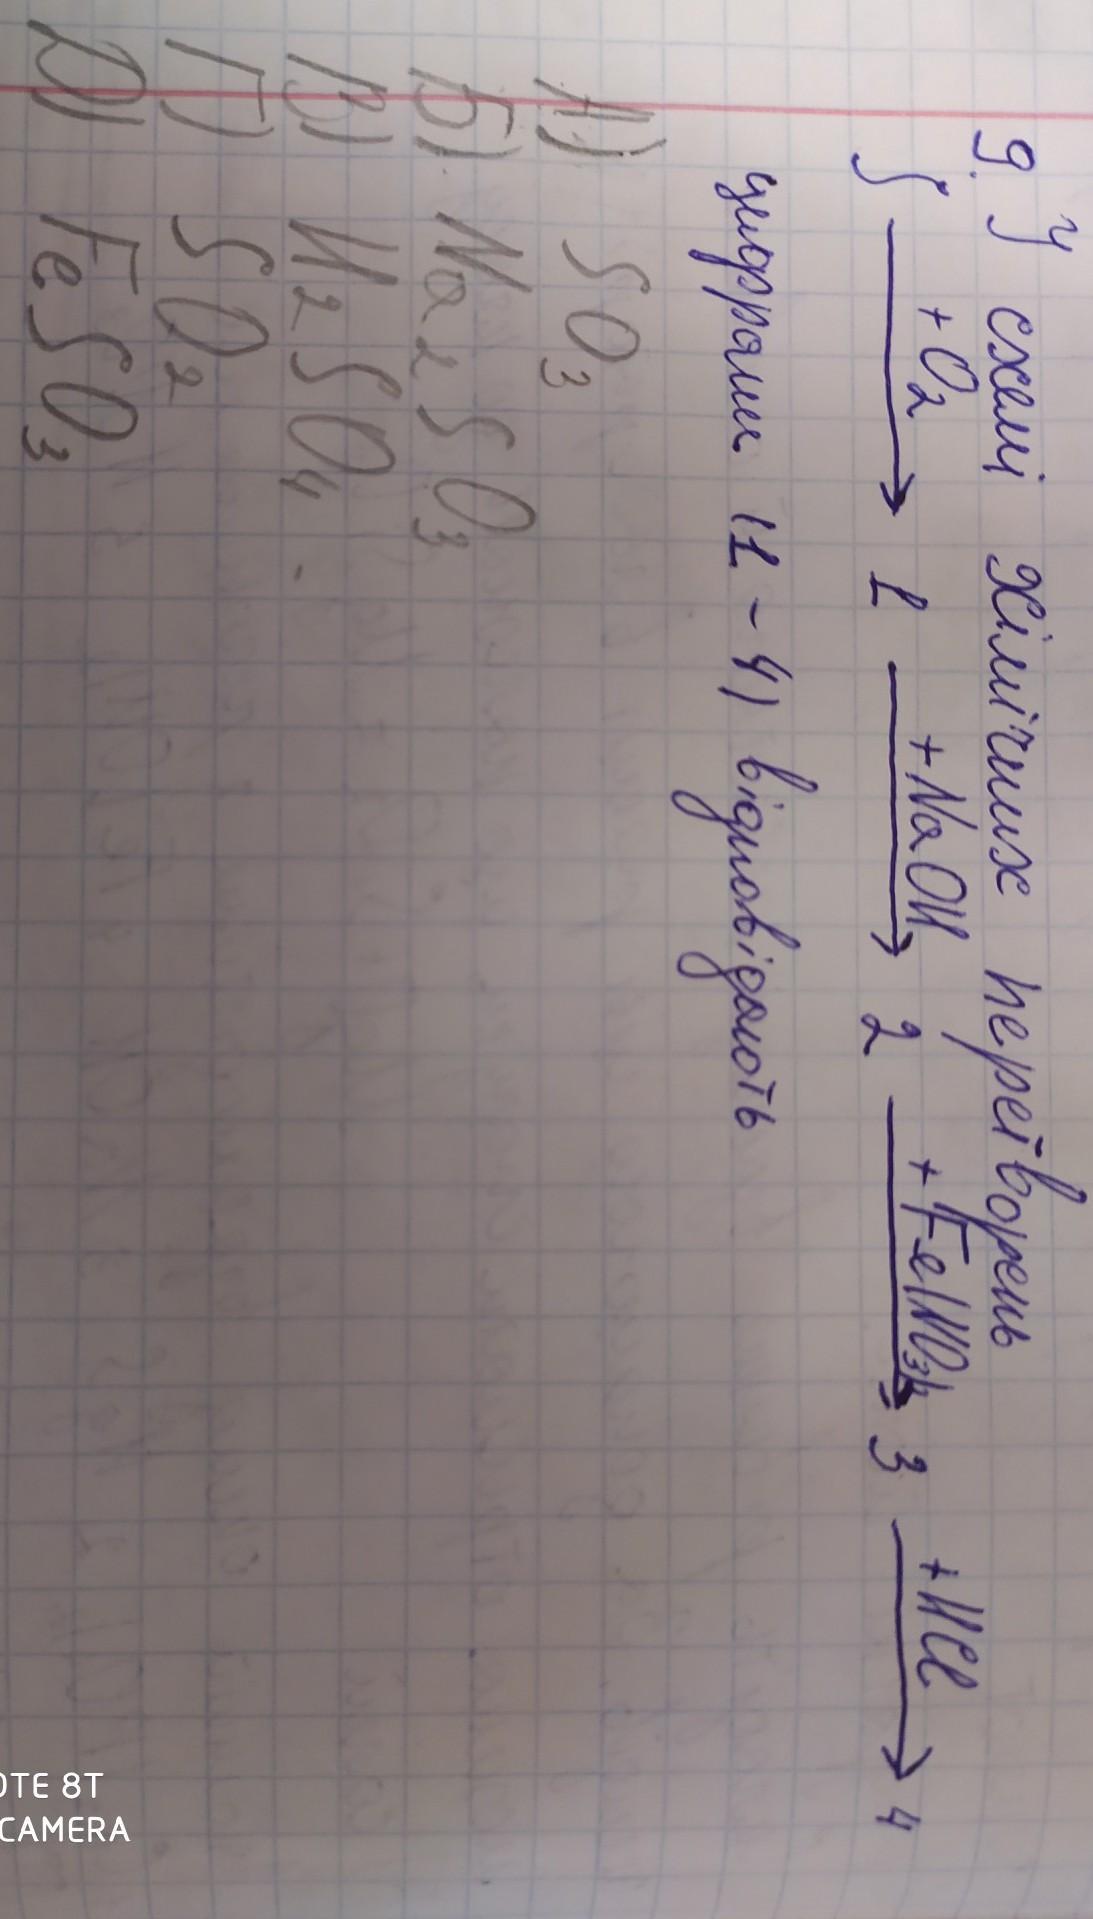 9. У схемі хімічних перетворень
S +O2→ 1 +NaOH→ 2 +Fe(NO3)2→ 3 +HCl→ 4
цифрами (1-4) відповідають
А) SO3
Б) Na2SO3
В) H2SO4
Г) SO2
Д) FeSO3
OTE 8T
CAMERA